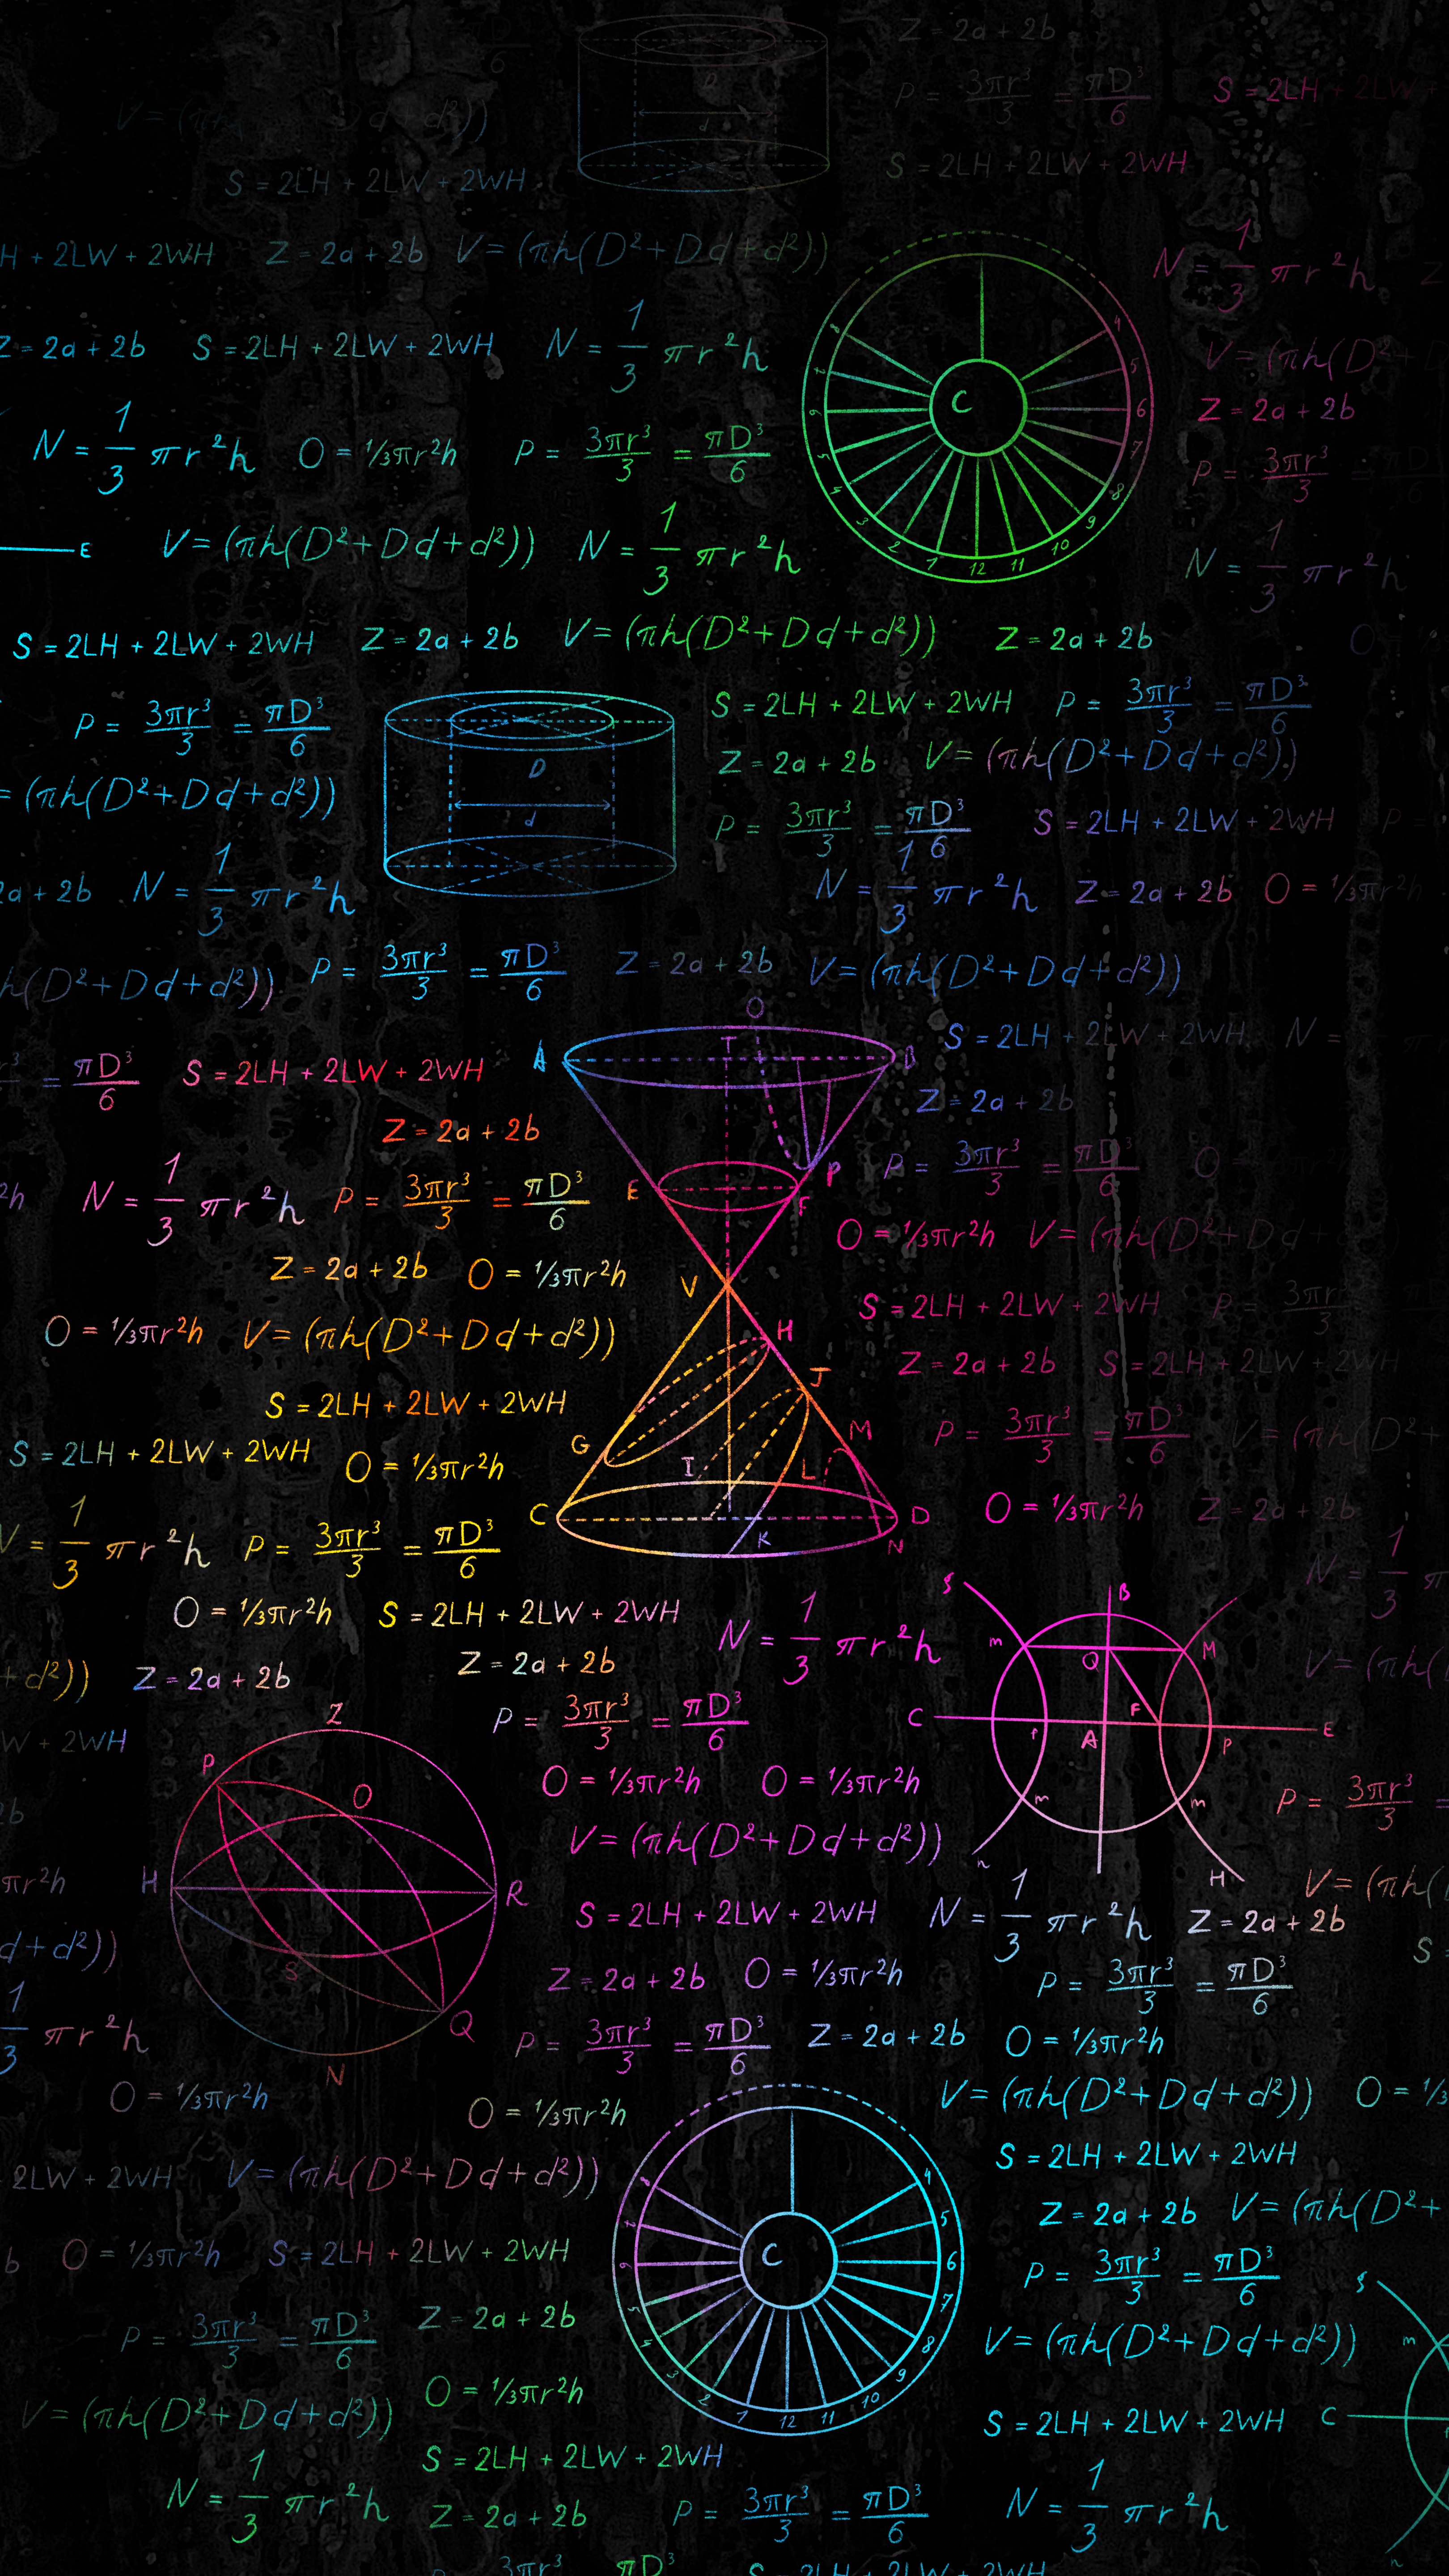 Z = 2a + 2b
P = 3πr³/3 = πD³/6
S = 2LH + 2LW +
D
d
S = 2LH + 2LW + 2WH
S = 2LH + 2LW + 2WH
H + 2LW + 2WH
Z = 2a + 2b
V = (πh(D²+Dd+d²))
N = 1/3 πr²h
Z = 2a + 2b
S = 2LH + 2LW + 2WH
N = 1/3 πr²h
4 5 6 7 8 9 10 11 12 1 2 3 4 5 6 7 8
C
Z = 2a + 2b
N = 1/3 πr²h
O = 1/3πr²h
P = 3πr³/3 = πD³/6
P = 3πr³/3
E
V = (πh(D²+Dd+d²))
N = 1/3 πr²h
N = 1/3 πr²h
S = 2LH + 2LW + 2WH
Z = 2a + 2b
V = (πh(D²+Dd+d²))
Z = 2a + 2b
P = 3πr³/3 = πD³/6
S = 2LH + 2LW + 2WH
P = 3πr³/3 = πD³/6
D
d
Z = 2a + 2b
V = (πh(D²+Dd+d²))
= (πh(D²+Dd+d²))
P = 3πr³/3 = πD³/6
S = 2LH + 2LW + 2WH
2a + 2b
N = 1/3 πr²h
N = 1/3 πr²h
Z = 2a + 2b
O = 1/3πr²h
h(D²+Dd+d²))
P = 3πr³/3 = πD³/6
Z = 2a + 2b
V = (πh(D²+Dd+d²))
O
S = 2LH + 2LW + 2WH
N =
A
T
B
= πD³/6
S = 2LH + 2LW + 2WH
Z = 2a + 2b
Z = 2a + 2b
P = 3πr³/3 = πD³/6
P
²h
N = 1/3 πr²h
P = 3πr³/3 = πD³/6
E
F
O = 1/3πr²h
V = (πh(D²+Dd+d
Z = 2a + 2b
O = 1/3πr²h
V
S = 2LH + 2LW + 2WH
O = 1/3πr²h
V = (πh(D²+Dd+d²))
H
Z = 2a + 2b
S = 2LH + 2LW + 2WH
J
S = 2LH + 2LW + 2WH
M
P = 3πr³/3 = πD³/6
S = 2LH + 2LW + 2WH
O = 1/3πr²h
G
I
L
C
K
D
N
O = 1/3πr²h
Z = 2a + 2b
= 1/3 πr²h
P = 3πr³/3 = πD³/6
O = 1/3πr²h
S = 2LH + 2LW + 2WH
N = 1/3 πr²h
S
B
m
M
Q
C
F
E
f
A
P
m
m
n
H
+ d²))
Z = 2a + 2b
Z = 2a + 2b
W + 2WH
P = 3πr³/3 = πD³/6
Z
P
O
H
R
S
Q
N
O = 1/3πr²h
O = 1/3πr²h
P = 3πr³/3 =
V = (πh(D²+Dd+d²))
πr²h
V = (πh(
S = 2LH + 2LW + 2WH
N = 1/3 πr²h
Z = 2a + 2b
d + d²))
Z = 2a + 2b
O = 1/3πr²h
P = 3πr³/3 = πD³/6
S
1/3 πr²h
P = 3πr³/3 = πD³/6
Z = 2a + 2b
O = 1/3πr²h
O = 1/3πr²h
O = 1/3πr²h
V = (πh(D²+Dd+d²))
O = 1/3
2LW + 2WH
V = (πh(D²+Dd+d²))
S = 2LH + 2LW + 2WH
4 5 6 7 8 9 10 11 12 1 2 3 4 5 6 7 8
C
Z = 2a + 2b
V = (πh(D²+
b
O = 1/3πr²h
S = 2LH + 2LW + 2WH
P = 3πr³/3 = πD³/6
P = 3πr³/3 = πD³/6
Z = 2a + 2b
V = (πh(D²+Dd+d²))
S
m
C
O = 1/3πr²h
V = (πh(D²+Dd+d²))
S = 2LH + 2LW + 2WH
S = 2LH + 2LW + 2WH
N = 1/3 πr²h
Z = 2a + 2b
P = 3πr³/3 = πD³/6
N = 1/3 πr²h
3πr³ πD³
S = 2LH + 2LW + 2WH